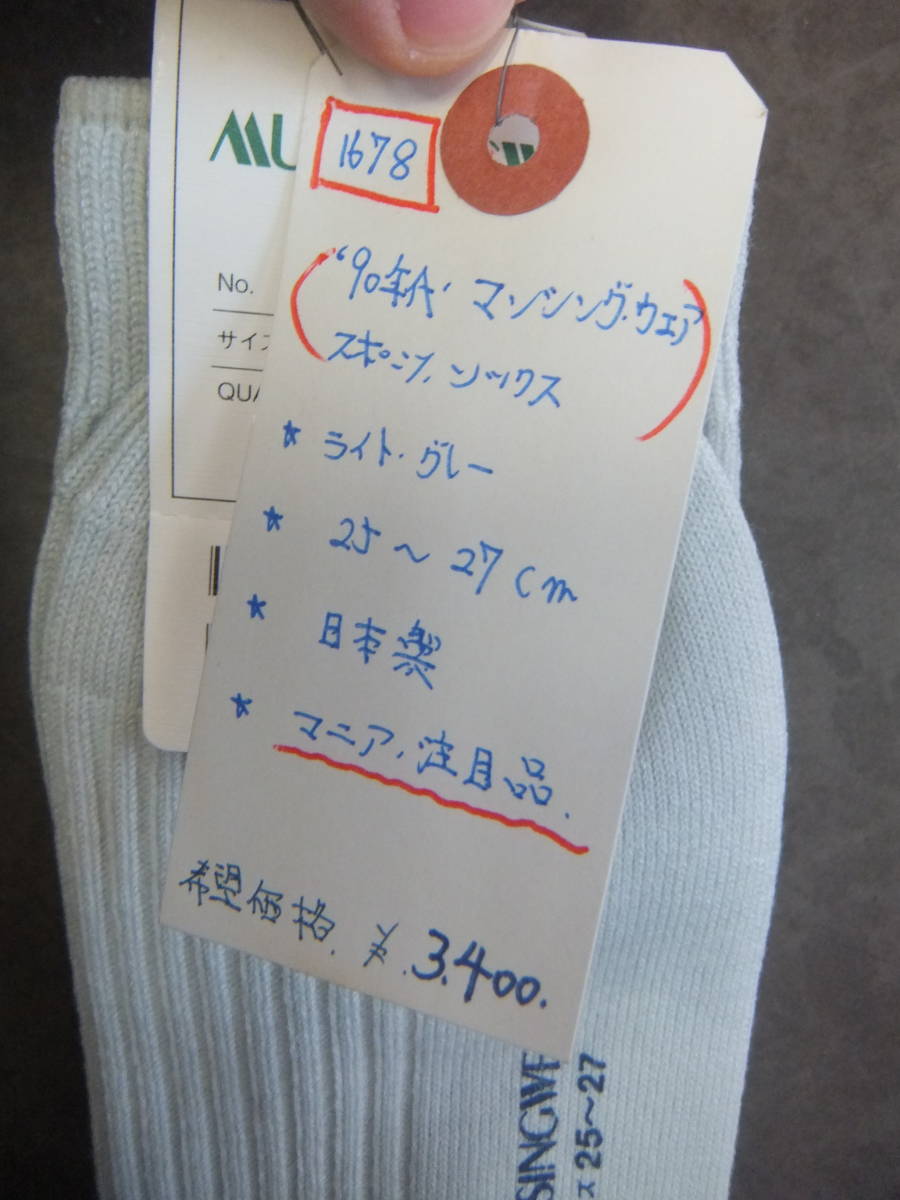 MU
No.
サイズ
QUA
1678
'90年代・マンシング・ウェア
スポーツ・ソックス
★ ライト・グレー
★ 25～27cm
★ 日本製
★ マニア・注目品.
希望価格. ¥.3.400.
SINGWE
x 25～27